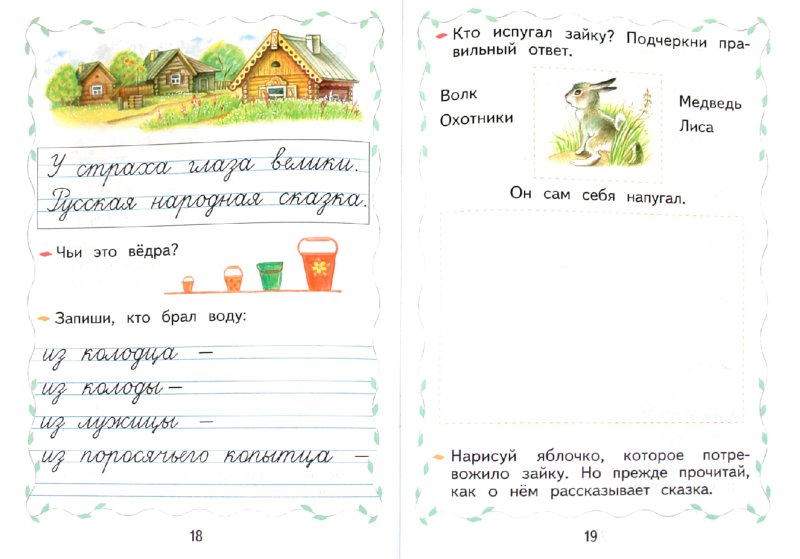 У страха глаза велики.
Русская народная сказка.
Чьи это вёдра?
Запиши, кто брал воду:
из колодца —
из колоды —
из лужицы —
из поросячьего копытца —
18
Кто испугал зайку? Подчеркни пра-
вильный ответ.
Волк
Охотники
Медведь
Лиса
Он сам себя напугал.
Нарисуй яблочко, которое потре-
вожило зайку. Но прежде прочитай,
как о нём рассказывает сказка.
19